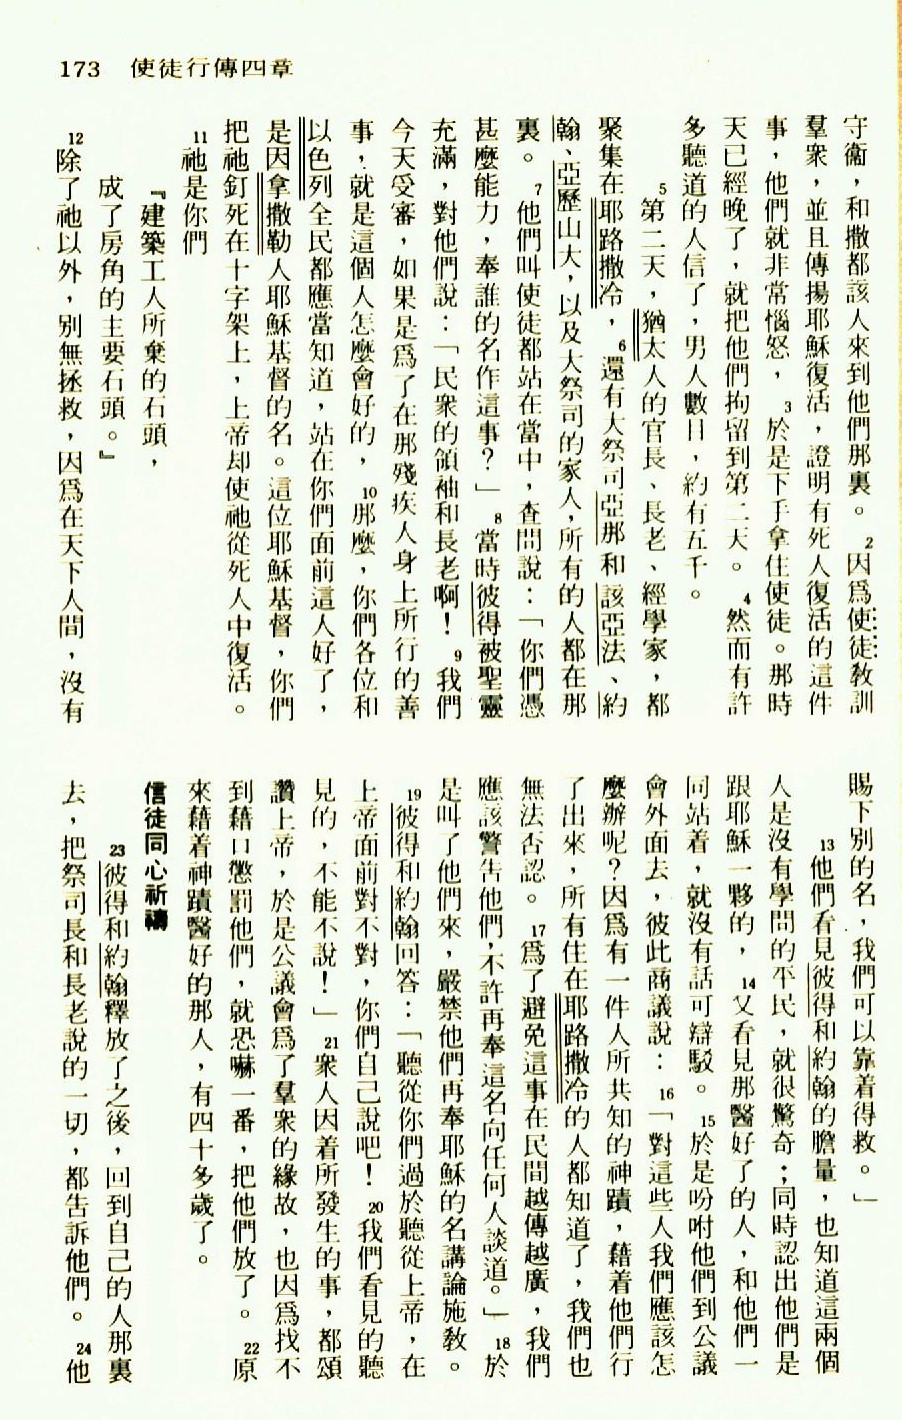 173 使徒行傳四章
守衞，和撒都該人來到他們那裏。 2因爲使徒教訓
羣衆，並且傳揚耶穌復活，證明有死人復活的這件
事，他們就非常惱怒， 3於是下手拿住使徒。那時
天已經晚了，就把他們拘留到第二天。 4然而有許
多聽道的人信了，男人數目，約有五千。
5第二天，猶太人的官長、長老、經學家，都
聚集在耶路撒冷， 6還有大祭司亞那和該亞法、約
翰、亞歷山大，以及大祭司的家人，所有的人都在那
裏。 7他們叫使徒都站在當中，查問說：「你們憑
甚麼能力，奉誰的名作這事？」 8當時彼得被聖靈
充滿，對他們說：「民衆的領袖和長老啊！ 9我們
今天受審，如果是爲了在那殘疾人身上所行的善
事，就是這個人怎麼會好的， 10那麼，你們各位和
以色列全民都應當知道，站在你們面前這人好了，
是因拿撒勒人耶穌基督的名。這位耶穌基督，你們
把祂釘死在十字架上，上帝却使祂從死人中復活。
11祂是你們
『建築工人所棄的石頭，
成了房角的主要石頭。』
12除了祂以外，別無拯救，因爲在天下人間，沒有
賜下別的名，我們可以靠着得救。」
13他們看見彼得和約翰的膽量，也知道這兩個
人是沒有學問的平民，就很驚奇；同時認出他們是
跟耶穌一夥的， 14又看見那醫好了的人，和他們一
同站着，就沒有話可辯駁。 15於是吩咐他們到公議
會外面去，彼此商議說： 16「對這些人我們應該怎
麼辦呢？因爲有一件人所共知的神蹟，藉着他們行
了出來，所有住在耶路撒冷的人都知道了，我們也
無法否認。 17爲了避免這事在民間越傳越廣，我們
應該警告他們，不許再奉這名向任何人談道。」 18於
是叫了他們來，嚴禁他們再奉耶穌的名講論施教。
19彼得和約翰回答：「聽從你們過於聽從上帝，在
上帝面前對不對，你們自己說吧！ 20我們看見的聽
見的，不能不說！」 21衆人因着所發生的事，都頌
讚上帝，於是公議會爲了羣衆的緣故，也因爲找不
到藉口懲罰他們，就恐嚇一番，把他們放了。 22原
來藉着神蹟醫好的那人，有四十多歲了。
信徒同心祈禱
23彼得和約翰釋放了之後，回到自己的人那裏
去，把祭司長和長老說的一切，都告訴他們。 24他